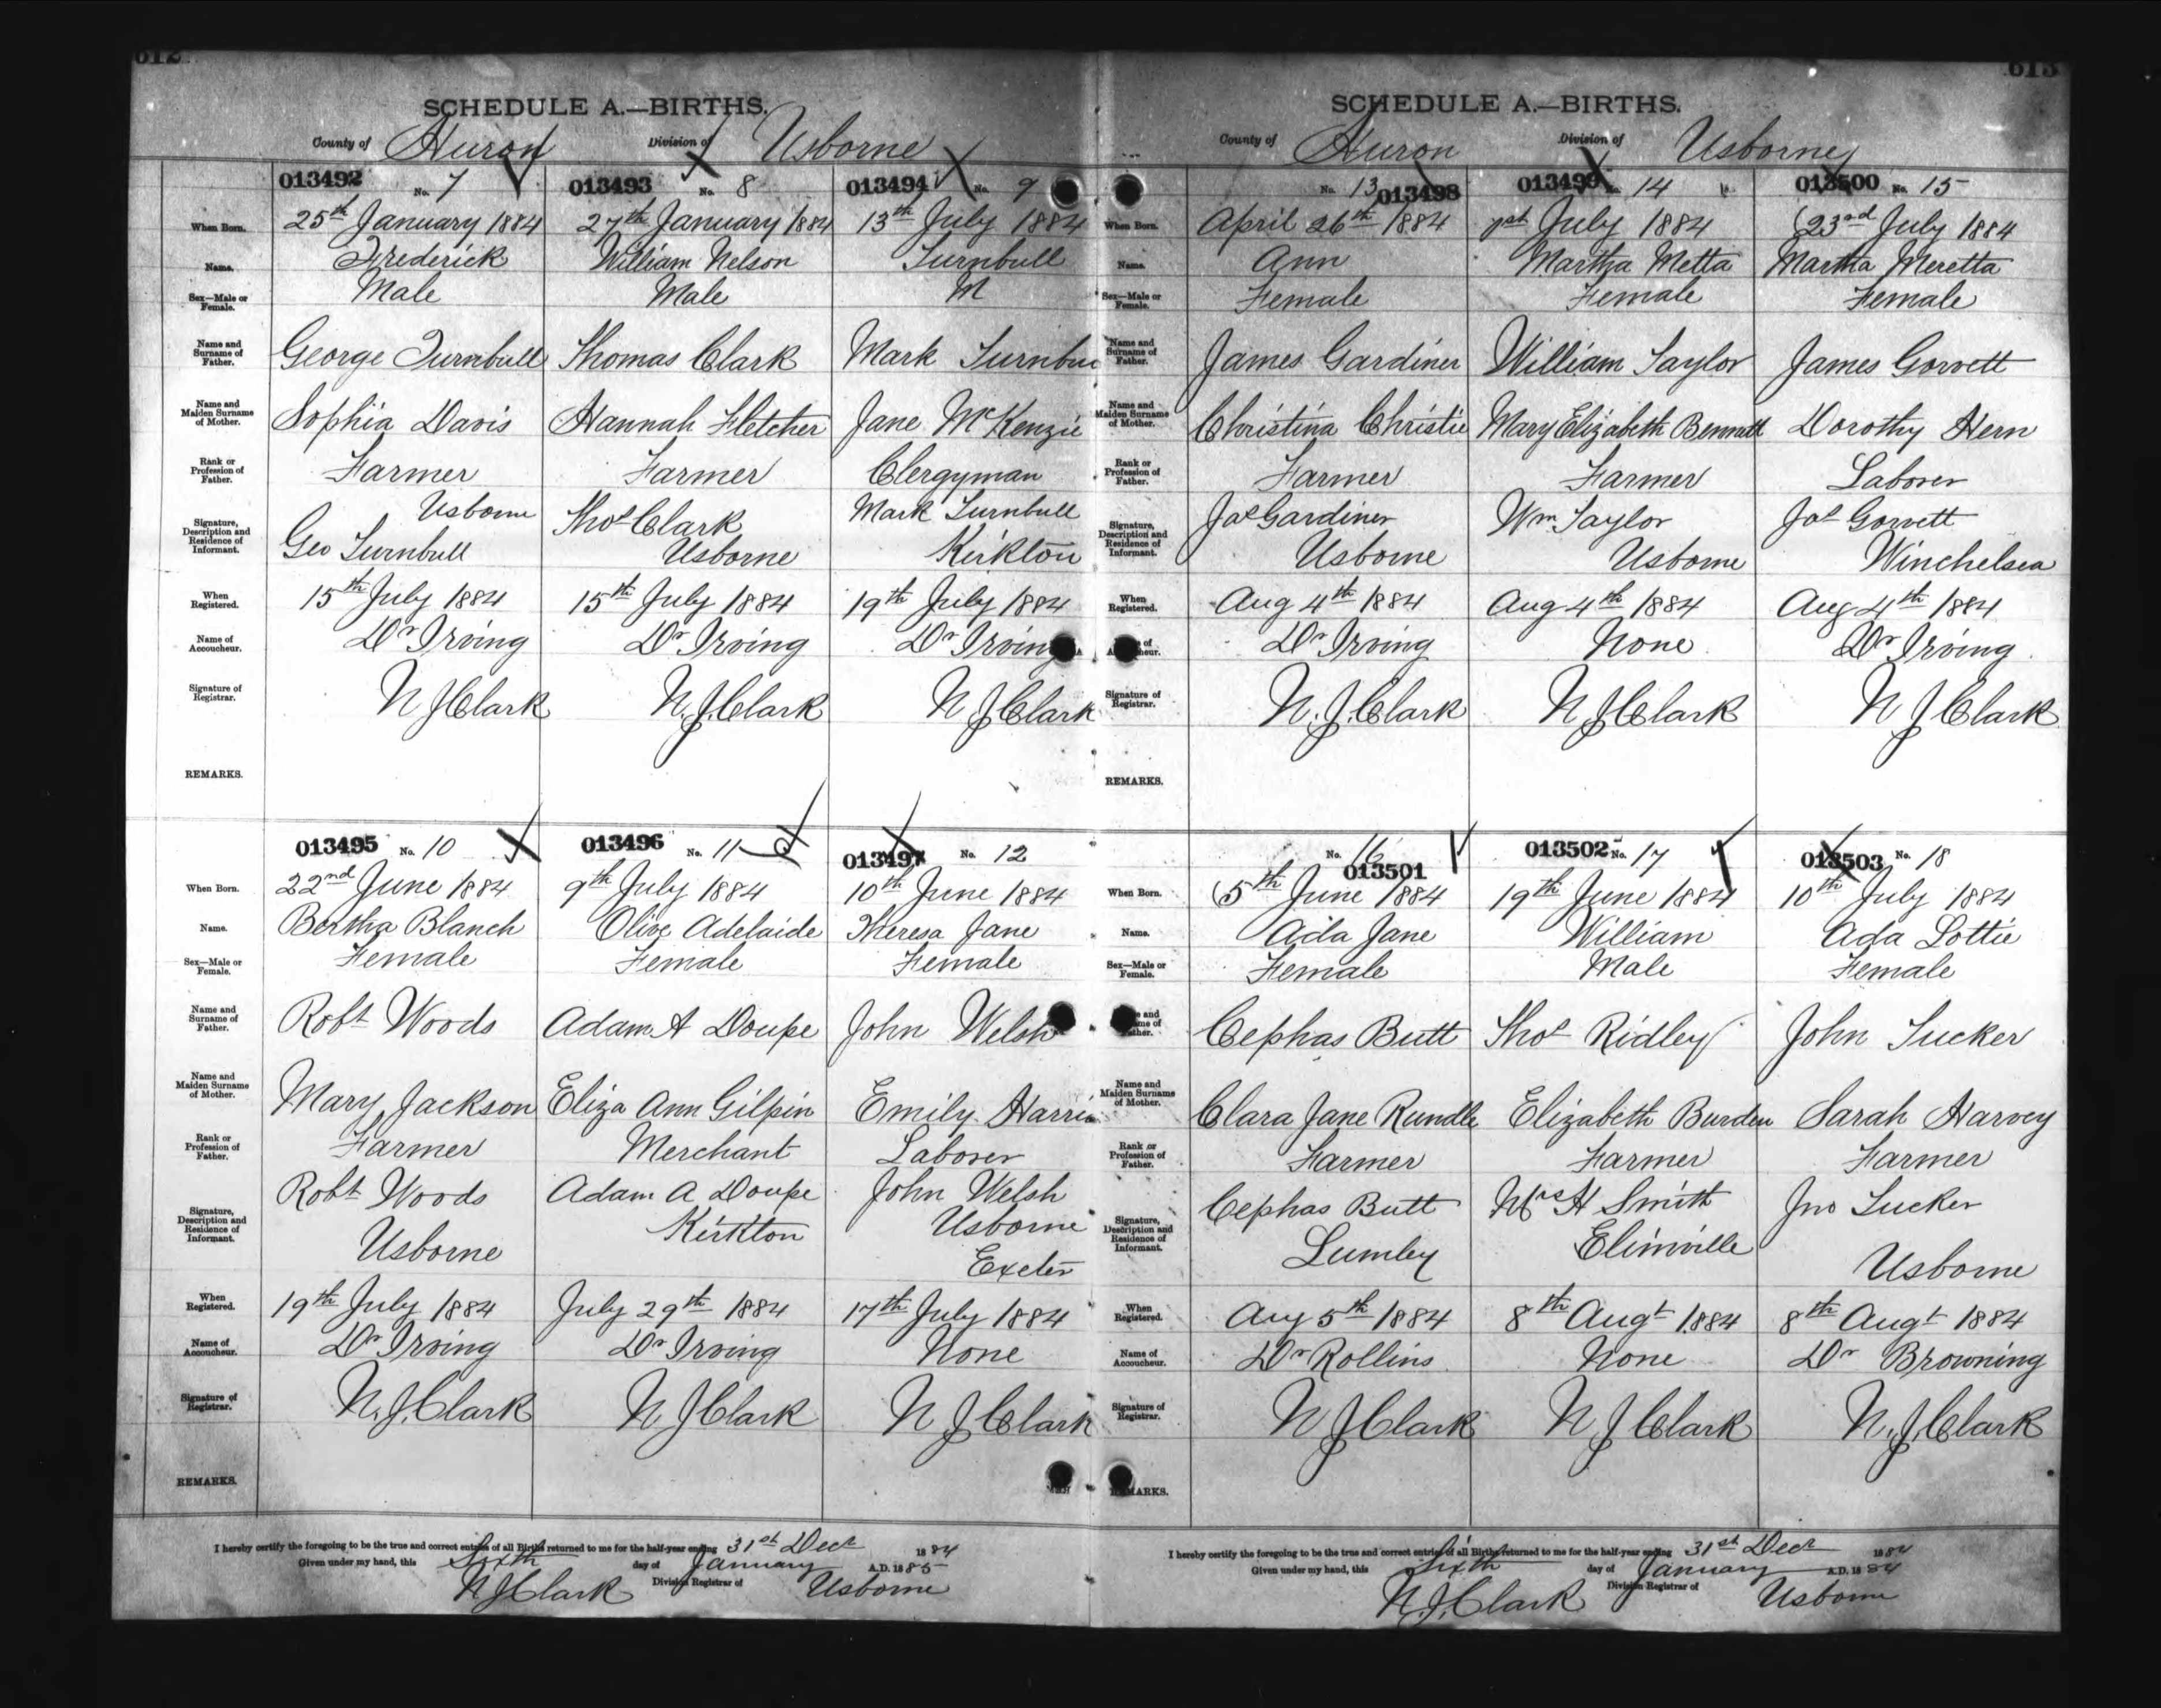 612
SCHEDULE A.—BIRTHS.
County of Huron Division of Usborne
013492 No. 7 013493 No. 8 013494 No. 9
When Born. 25th January 1884 27th January 1884 13th July 1884
Name. Frederick William Nelson Turnbull
Sex—Male or Female. Male Male M
Name and Surname of Father. George Turnbull Thomas Clark Mark Turnbu
Name and Maiden Surname of Mother. Sophia Davis Hannah Fletcher Jane McKenzie
Rank or Profession of Father. Farmer Farmer Clergyman
Signature, Description and Residence of Informant. Usborne Geo Turnbull Thos Clark Usborne Mark Turnbull Kirkton
When Registered. 15th July 1884 15th July 1884 19th July 1884
Name of Accoucheur. Dr Irving Dr Irving Dr Irving
Signature of Registrar. N J Clark N. J. Clark N J Clark
REMARKS.
013495 No. 10 013496 No. 11 013497 No. 12
When Born. 22nd June 1884 9th July 1884 10th June 1884
Name. Bertha Blanch Olive Adelaide Theresa Jane
Sex—Male or Female. Female Female Female
Name and Surname of Father. Robt Woods Adam A Doupe John Welsh
Name and Maiden Surname of Mother. Mary Jackson Eliza Ann Gilpin Emily Harris
Rank or Profession of Father. Farmer Merchant Laborer
Signature, Description and Residence of Informant. Robt Woods Usborne Adam A Doupe Kirkton John Welsh Usborne Exeter
When Registered. 19th July 1884 July 29th 1884 17th July 1884
Name of Accoucheur. Dr Irving Dr Irving None
Signature of Registrar. N. J. Clark N J Clark N J Clark
REMARKS.
I hereby certify the foregoing to be the true and correct entries of all Births returned to me for the half-year ending 31st Decr 1884
Given under my hand, this Sixth day of January A.D. 1885
N J Clark Division Registrar of Usborne
613
SCHEDULE A.—BIRTHS.
County of Huron Division of Usborne
No. 13 013498 013499 No. 14 013500 No. 15
When Born. April 26th 1884 1st July 1884 23rd July 1884
Name. Ann Martha Metta Martha Meretta
Sex—Male or Female. Female Female Female
Name and Surname of Father. James Gardiner William Taylor James Gorvett
Name and Maiden Surname of Mother. Christina Christie Mary Elizabeth Bennett Dorothy Hern
Rank or Profession of Father. Farmer Farmer Laborer
Signature, Description and Residence of Informant. Jas Gardiner Usborne Wm Taylor Usborne Jas Gorvett Winchelsea
When Registered. Aug 4th 1884 Aug 4th 1884 Aug 4th 1884
of heur. Dr Irving None Dr Irving
Signature of Registrar. N. J. Clark N J Clark N J Clark
REMARKS.
No. 16 013501 013502 No. 17 013503 No. 18
When Born. 5th June 1884 19th June 1884 10th July 1884
Name. Ada Jane William Ada Lottie
Sex—Male or Female. Female Male Female
and me of ther. Cephas Butt Thos Ridley John Tucker
Name and Maiden Surname of Mother. Clara Jane Rundle Elizabeth Burden Sarah Harvey
Rank or Profession of Father. Farmer Farmer Farmer
Signature, Description and Residence of Informant. Cephas Butt Lumley Mrs H Smith Elimville Jno Tucker Usborne
When Registered. Aug 5th 1884 8th Augt 1884 8th Augt 1884
Name of Accoucheur. Dr Rollins None Dr Browning
Signature of Registrar. N J Clark N J Clark N. J. Clark
REMARKS.
I hereby certify the foregoing to be the true and correct entries of all Births returned to me for the half-year ending 31st Decr 1884
Given under my hand, this Sixth day of January A.D. 1884
N. J. Clark Division Registrar of Usborne